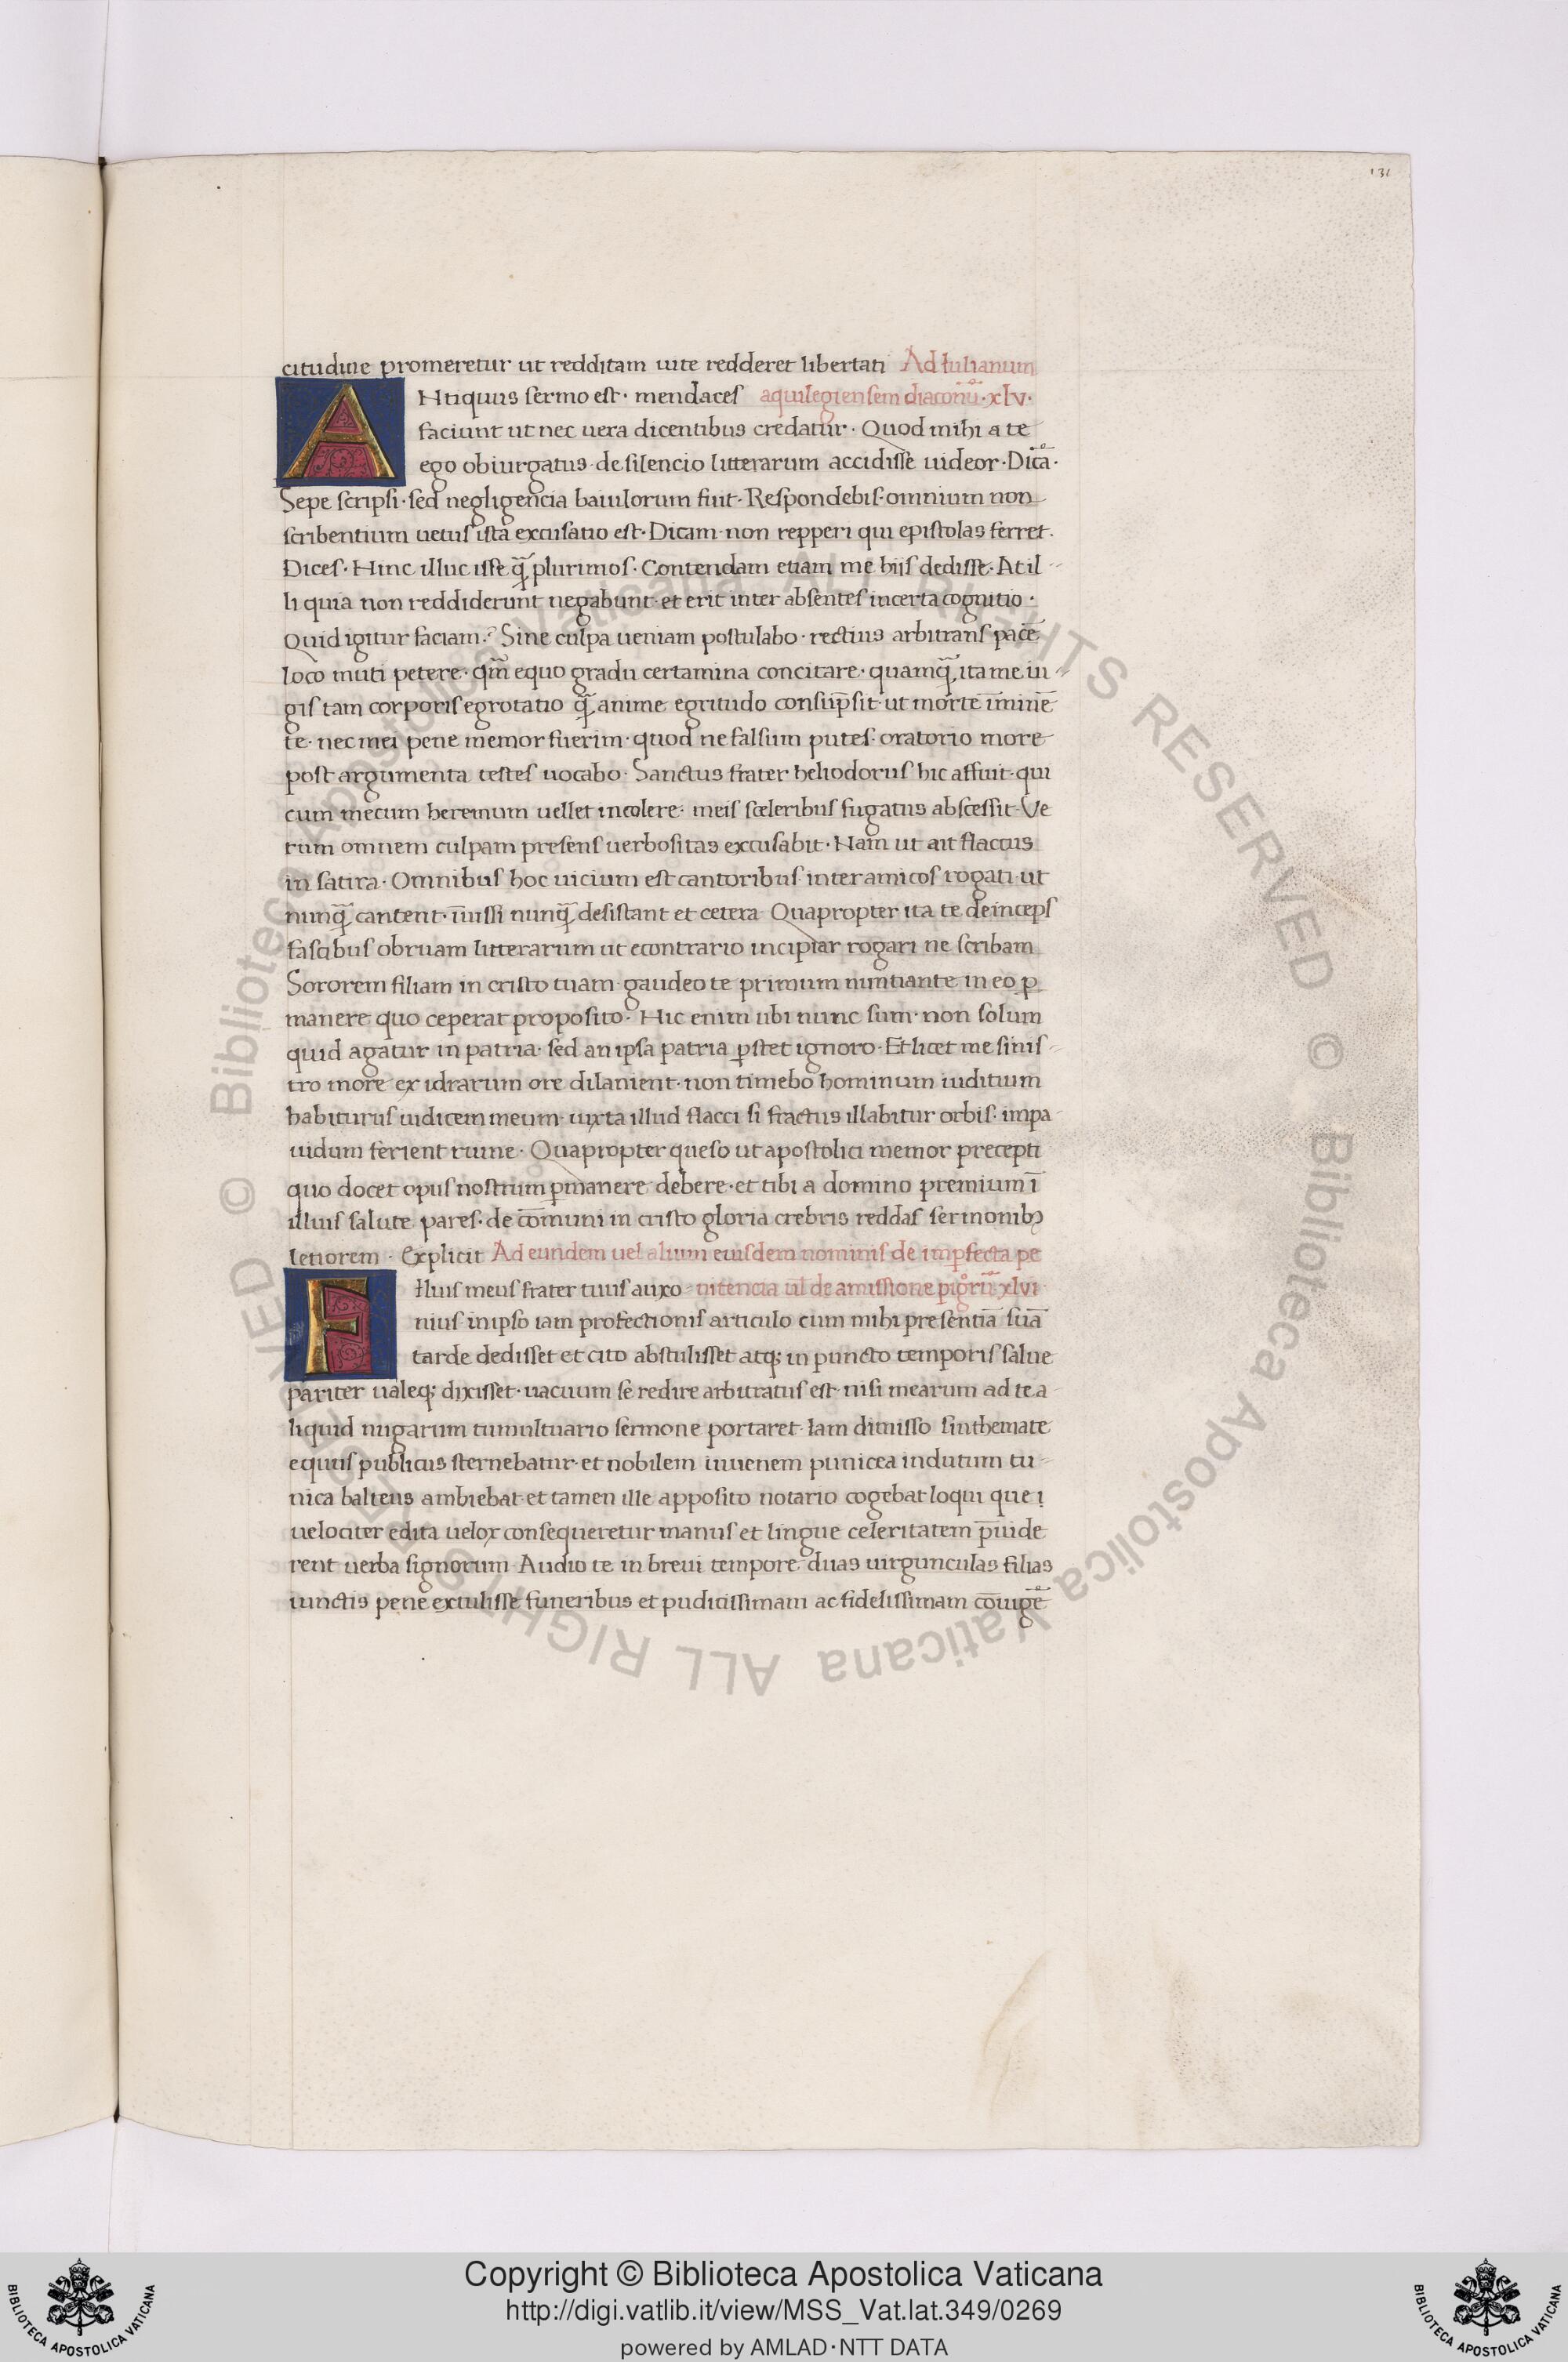 131
citudine promeretur ut redditam uite redderet libertati Ad Iulianum
ANtiquus sermo est· mendaces aquilegiensem diaconū·xlv·
faciunt ut nec uera dicentibus credatur· Quod mihi a te
ego obiurgatus· de silencio litterarum accidisse uideor· Dicā·
Sepe scripsi· sed negligencia baiulorum fuit· Respondebis· omnium non
scribentium uetus ista excusatio est· Dicam· non repperi qui epistolas ferret·
Dices· Hinc illuc isse q̄ plurimos· Contendam etiam me hiis dedisse· At il-
li quia non reddiderunt negabunt· et erit inter absentes incerta cognitio·
Quid igitur faciam? Sine culpa ueniam postulabo· rectius arbitrans pacē
loco muti petere· qm̄ equo gradu certamina concitare· quamq̄ ita me iu-
gis tam corporis egrotatio q̄ anime egritudo consūpsit· ut morte īminē
te· nec mei pene memor fuerim· quod ne falsum putes· oratorio more
post argumenta testes uocabo· Sanctus frater heliodorus hic affuit· qui
cum mecum heremum uellet incolere· meis sceleribus fugatus abscessit· Ve
rum omnem culpam presens uerbositas excusabit· Nam ut ait flaccus
in satira· Omnibus hoc uicium est cantoribus· inter amicos rogati· ut
nunq̄ cantent· īuissi nunq̄ desistant et cetera Quapropter ita te deinceps
fascibus obruam litterarum ut econtrario incipiar rogari ne scribam
Sororem filiam in cristo tuam gaudeo te primum nuntiante in eo ꝑ
manere quo ceperat proposito· Hic enim ubi nunc sum· non solum
quid agatur in patria· sed an ipsa patria ꝑstet ignoro· Et licet me sinis-
tro more ex idrarum ore dilanient· non timebo hominum iuditium
habiturus iudicem meum· iuxta illud flacci si fractus illabitur orbis· impa-
uidum ferient ruine· Quapropter queso ut apostolici memor precepti
quo docet opus nostrum ꝑmanere debere· et tibi a domino premium ī
illius salute pares· de cōmuni in cristo gloria crebris reddas sermonibꝫ
letiorem· Explicit Ad eundem uel alium eiusdem nominis de imꝑfecta pe
FIlius meus frater tuus auxo- nitencia ul̄ de amissione pigṙ xlvi·
nius in ipso iam profectionis articulo cum mihi presentiā suā
tarde dedisset et cito abstulisset atqꝫ in puncto temporis salue
pariter ualeqꝫ dixisset· uacuum se redire arbitratus est· nisi mearum ad te a-
liquid nugarum tumultuario sermone portaret· Iam dimisso sinthemate
equus publicus sternebatur· et nobilem iuuenem punicea indutum tu-
nica balteus ambiebat· et tamen ille apposito notario cogebat loqui que i
uelociter edita uelox consequeretur manus et lingue celeritatem p̄uide
rent uerba signorum· Audio te in breui tempore duas uirgunculas filias
iunctis pene extulisse funeribus et pudicissimam ac fidelissimam cōiugē
© Biblioteca Apostolica Vaticana ALL RIGHTS RESERVED © Biblioteca Apostolica Vaticana ALL RIGHTS RESERVED
Copyright © Biblioteca Apostolica Vaticana
http://digi.vatlib.it/view/MSS_Vat.lat.349/0269
powered by AMLAD·NTT DATA
BIBLIOTECA APOSTOLICA VATICANA
BIBLIOTECA APOSTOLICA VATICANA